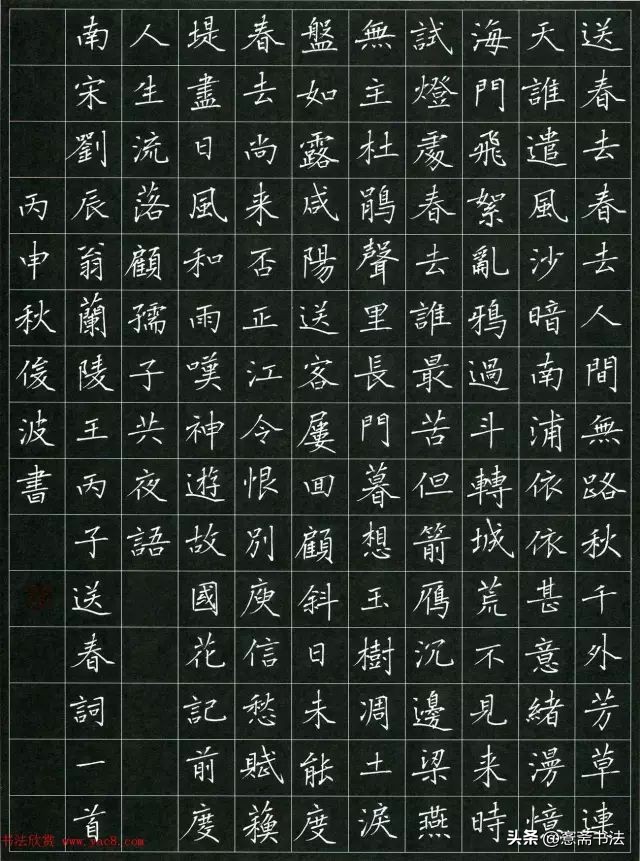 送春去春去人間無路秋千外芳草連
天誰遣風沙暗南浦依依甚意緒漫憶
海門飛絮亂鴉過斗轉城荒不見来時
試燈處春去誰最苦但箭鴈沉邊梁燕
無主杜鵑聲里長門暮想玉樹凋土淚
盤如露咸陽送客屢囬顧斜日未能度
春去尚来否正江令恨別庾信愁賦蘓
堤盡日風和雨嘆神遊故國花記前度
人生流落顧孺子共夜語
南宋劉辰翁蘭陵王丙子送春詞一首
丙申秋俊波書
书法欣赏 www.yac8.com
头条@意斋书法